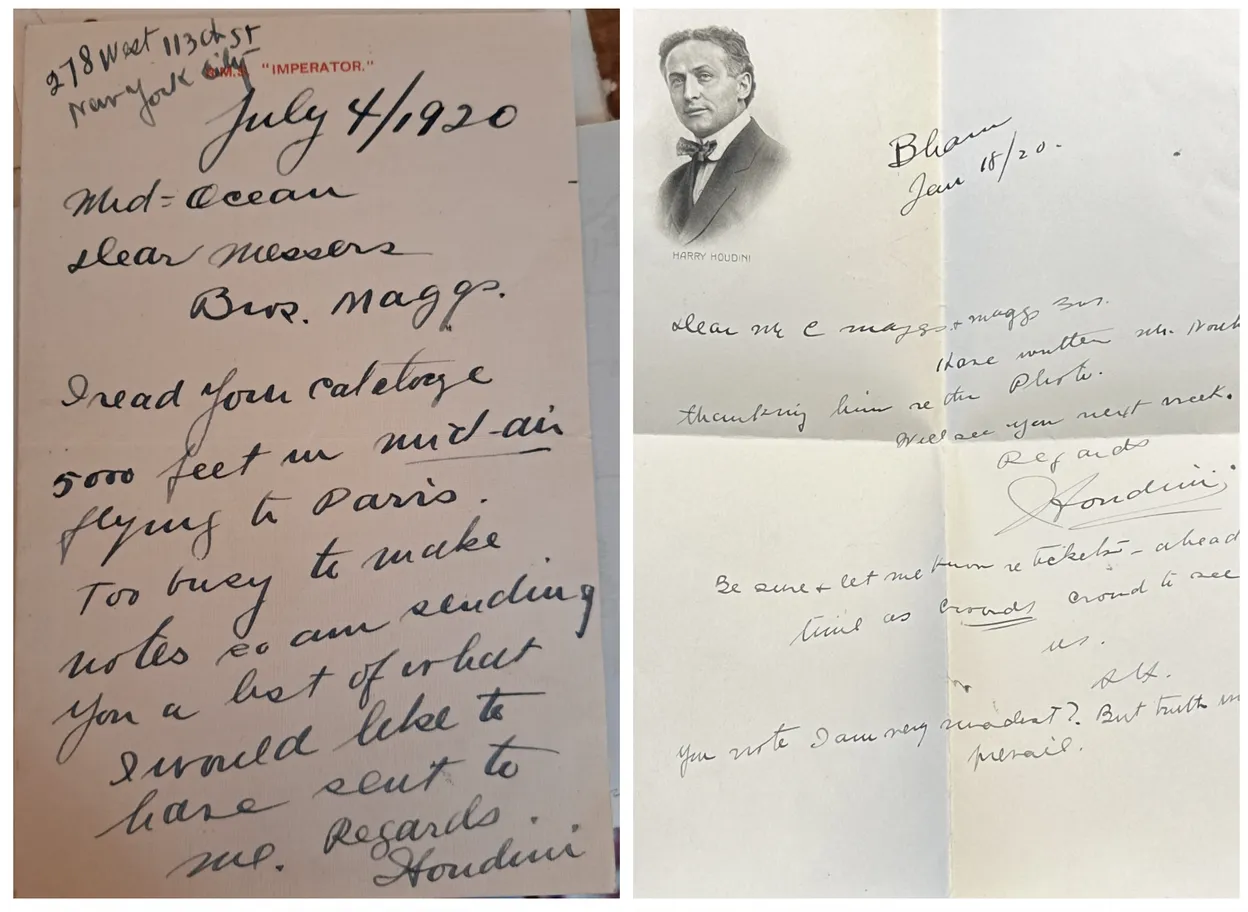 278 West 113th St
New York City
R.M.S. "IMPERATOR."
July 4/1920
Mid=Ocean
Dear Messers
Bros. Maggs.
I read your cataloge
5000 feet in mid-air
flying to Paris.
Too busy to make
notes so am sending
you a list of what
I would like to
have sent to
me. Regards.
Houdini
HARRY HOUDINI
Bham
Jan 18/20.
Dear Mr C maggs + maggs Bros.
Have written Mr.
thanking him re the Photo.
Will see you next week.
Regards
Houdini
Be sure + let me know re tickets - ahead
time as crowds crowd to see
us.
HH.
You note I am very modest? But truth
prevail.